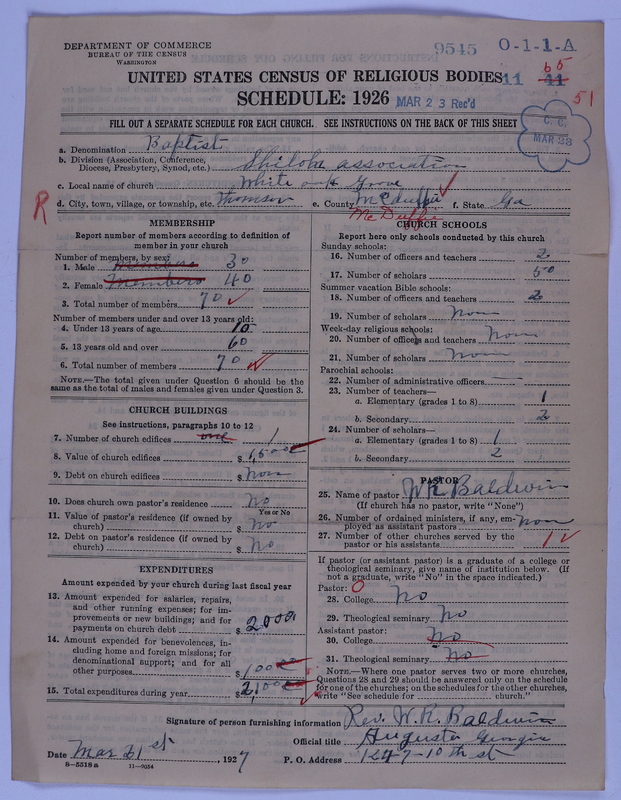 DEPARTMENT OF COMMERCE
BUREAU OF THE CENSUS
WASHINGTON
9545 O-1-1-A
UNITED STATES CENSUS OF RELIGIOUS BODIES 11 65
SCHEDULE: 1926 MAR 23 Rec'd 51
FILL OUT A SEPARATE SCHEDULE FOR EACH CHURCH. SEE INSTRUCTIONS ON THE BACK OF THIS SHEET
C. C.
MAR 23
a. Denomination Baptist
b. Division (Association, Conference, Diocese, Presbytery, Synod, etc.) Shilohe association
c. Local name of church White oak Grove
d. City, town, village, or township, etc. Thomson e. County McDuffie f. State Ga
R McDuffie
MEMBERSHIP
Report number of members according to definition of
member in your church
Number of members, by sex:
1. Male 30
2. Female Members 40
3. Total number of members 70
Number of members under and over 13 years old:
4. Under 13 years of age 10
5. 13 years old and over 60
6. Total number of members 70
NOTE.—The total given under Question 6 should be
same as the total of males and females given under Question 3.
CHURCH BUILDINGS
See instructions, paragraphs 10 to 12
7. Number of church edifices one 1
8. Value of church edifices $ 1,500
9. Debt on church edifices $ non
10. Does church own pastor's residence no
Yes or No
11. Value of pastor's residence (if owned by
church) $ no
12. Debt on pastor's residence (if owned by
church) $ no
EXPENDITURES
Amount expended by your church during last fiscal year
13. Amount expended for salaries, repairs,
and other running expenses; for im-
provements or new buildings; and for
payments on church debt $
14. Amount expended for benevolences, in-
cluding home and foreign missions; for
denominational support; and for all
other purposes $
15. Total expenditures during year $
CHURCH SCHOOLS
Report here only schools conducted by this church
Sunday schools:
16. Number of officers and teachers 2
17. Number of scholars 50
Summer vacation Bible schools:
18. Number of officers and teachers 2
19. Number of scholars non
Week-day religious schools:
20. Number of officers and teachers non
21. Number of scholars non
Parochial schools:
22. Number of administrative officers
23. Number of teachers—
a. Elementary (grades 1 to 8) 1
b. Secondary 2
24. Number of scholars—
a. Elementary (grades 1 to 8) 1
b. Secondary 2
PASTOR
25. Name of pastor W R Baldwin
(If church has no pastor, write "None")
26. Number of ordained ministers, if any, em-
ployed as assistant pastors non
27. Number of other churches served by the
pastor or his assistants 1
If pastor (or assistant pastor) is a graduate of a college or
theological seminary, give name of institution below. (If
not a graduate, write "No" in the space indicated.)
Pastor: O
28. College No
29. Theological seminary No
Assistant pastor:
30. College No
31. Theological seminary No
NOTE.—Where one pastor serves two or more churches,
Questions 28 and 29 should be answered only on the schedule
for one of the churches; on the schedules for the other churches,
write "See schedule for church."
Signature of person furnishing information Rev. W. R. Baldwin
Official title Auguster Georgia
Date Mar 21st, 1927 P. O. Address 1247-10th st
8-5518a 11-9054